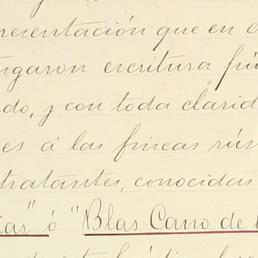 presentación que en
ngaron escritura pú
do, y con toda clarid
es á las fincas rús
tratantes, conocidas
ó "Blas Cano de